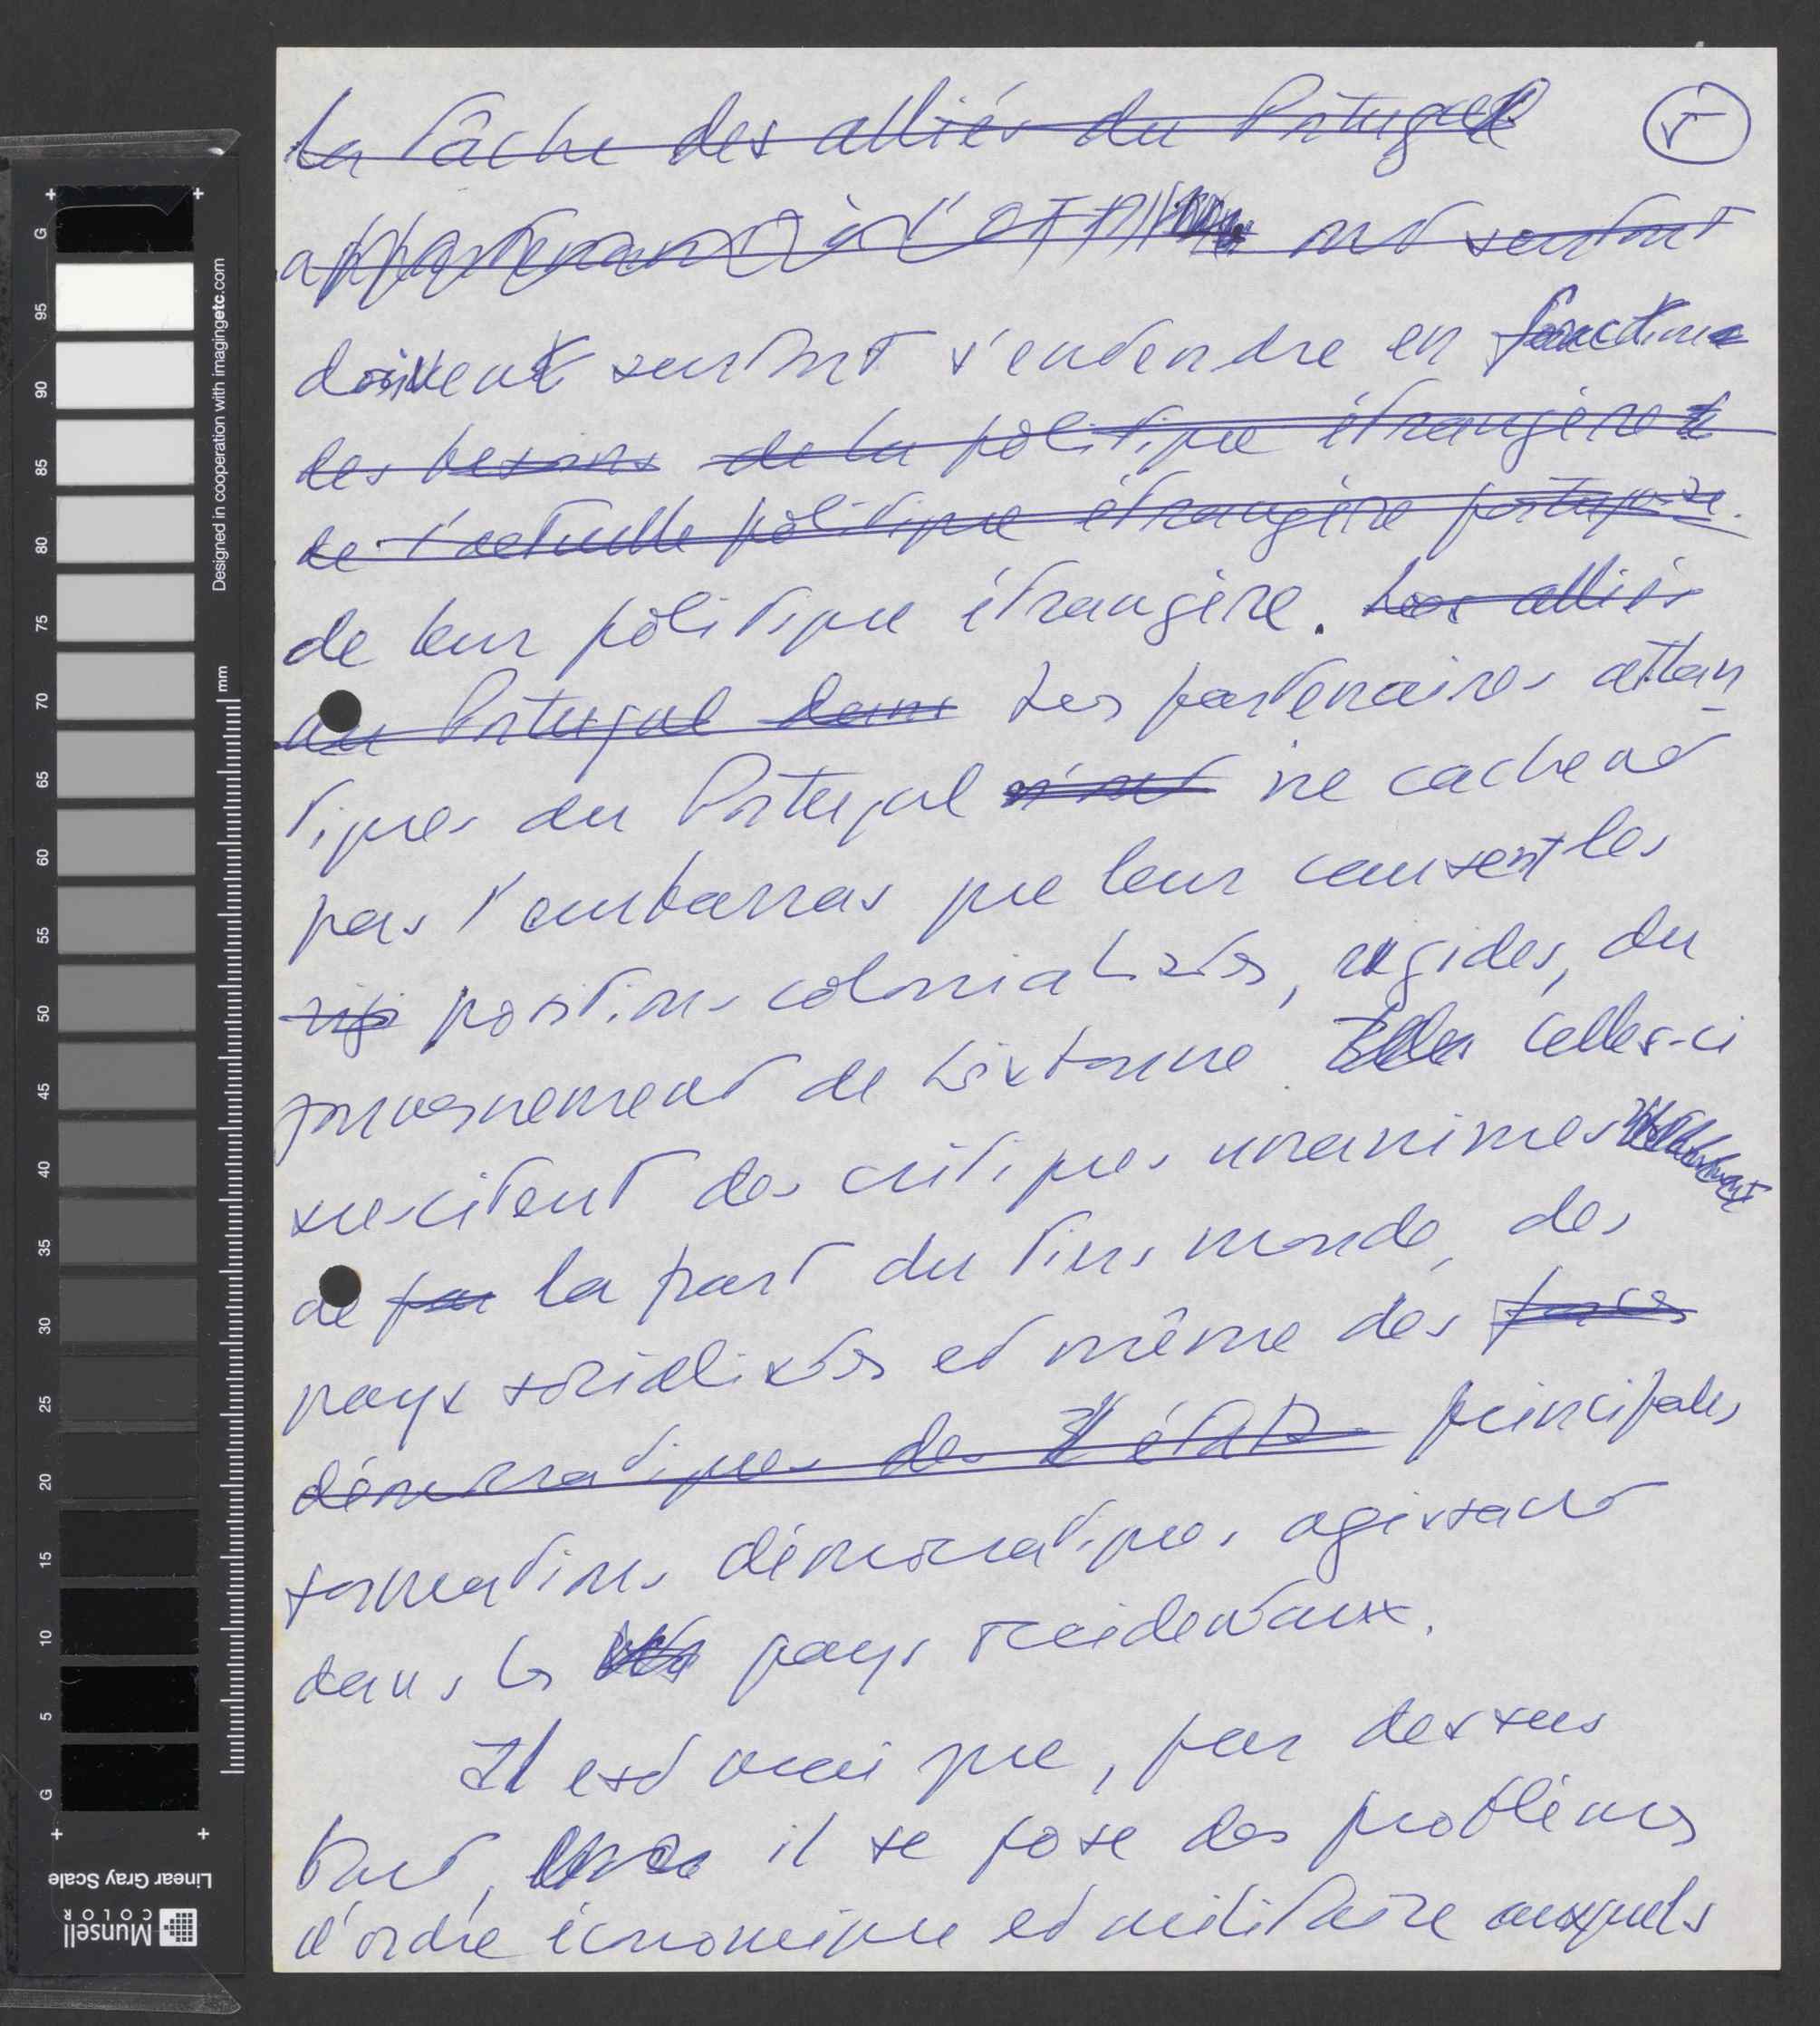 la tâche des alliés du Portugal
5
appartenant à l'OTAN ont surtout
doivent surtout s'entendre en fonction
des besoins de la politique étrangère
de l'actuelle politique étrangère portugaise.
de leur politique étrangère. Les alliés
du Portugal dans Les partenaires atlan-
tiques du Portugal n'ont ne cachent
pas l'embarras que leur causent les
rigi positions colonialistes, rigides, du
gouvernement de Lisbonne. Elles Celles-ci
suscitent des critiques unanimes
de par la part du tiers monde, des
pays socialistes et même des forces
démocratiques des états principales
formations démocratiques agissant
dans les pays occidentaux.
Il est vrai que, par dessus
tout, il se pose des problèmes
d'ordre économique et militaire auxquels
G
95
90
85
80
75
70
65
60
55
50
45
40
35
30
25
20
15
10
5
G
mm
Designed in cooperation with imagingetc.com
Munsell
COLOR
Linear Gray Scale